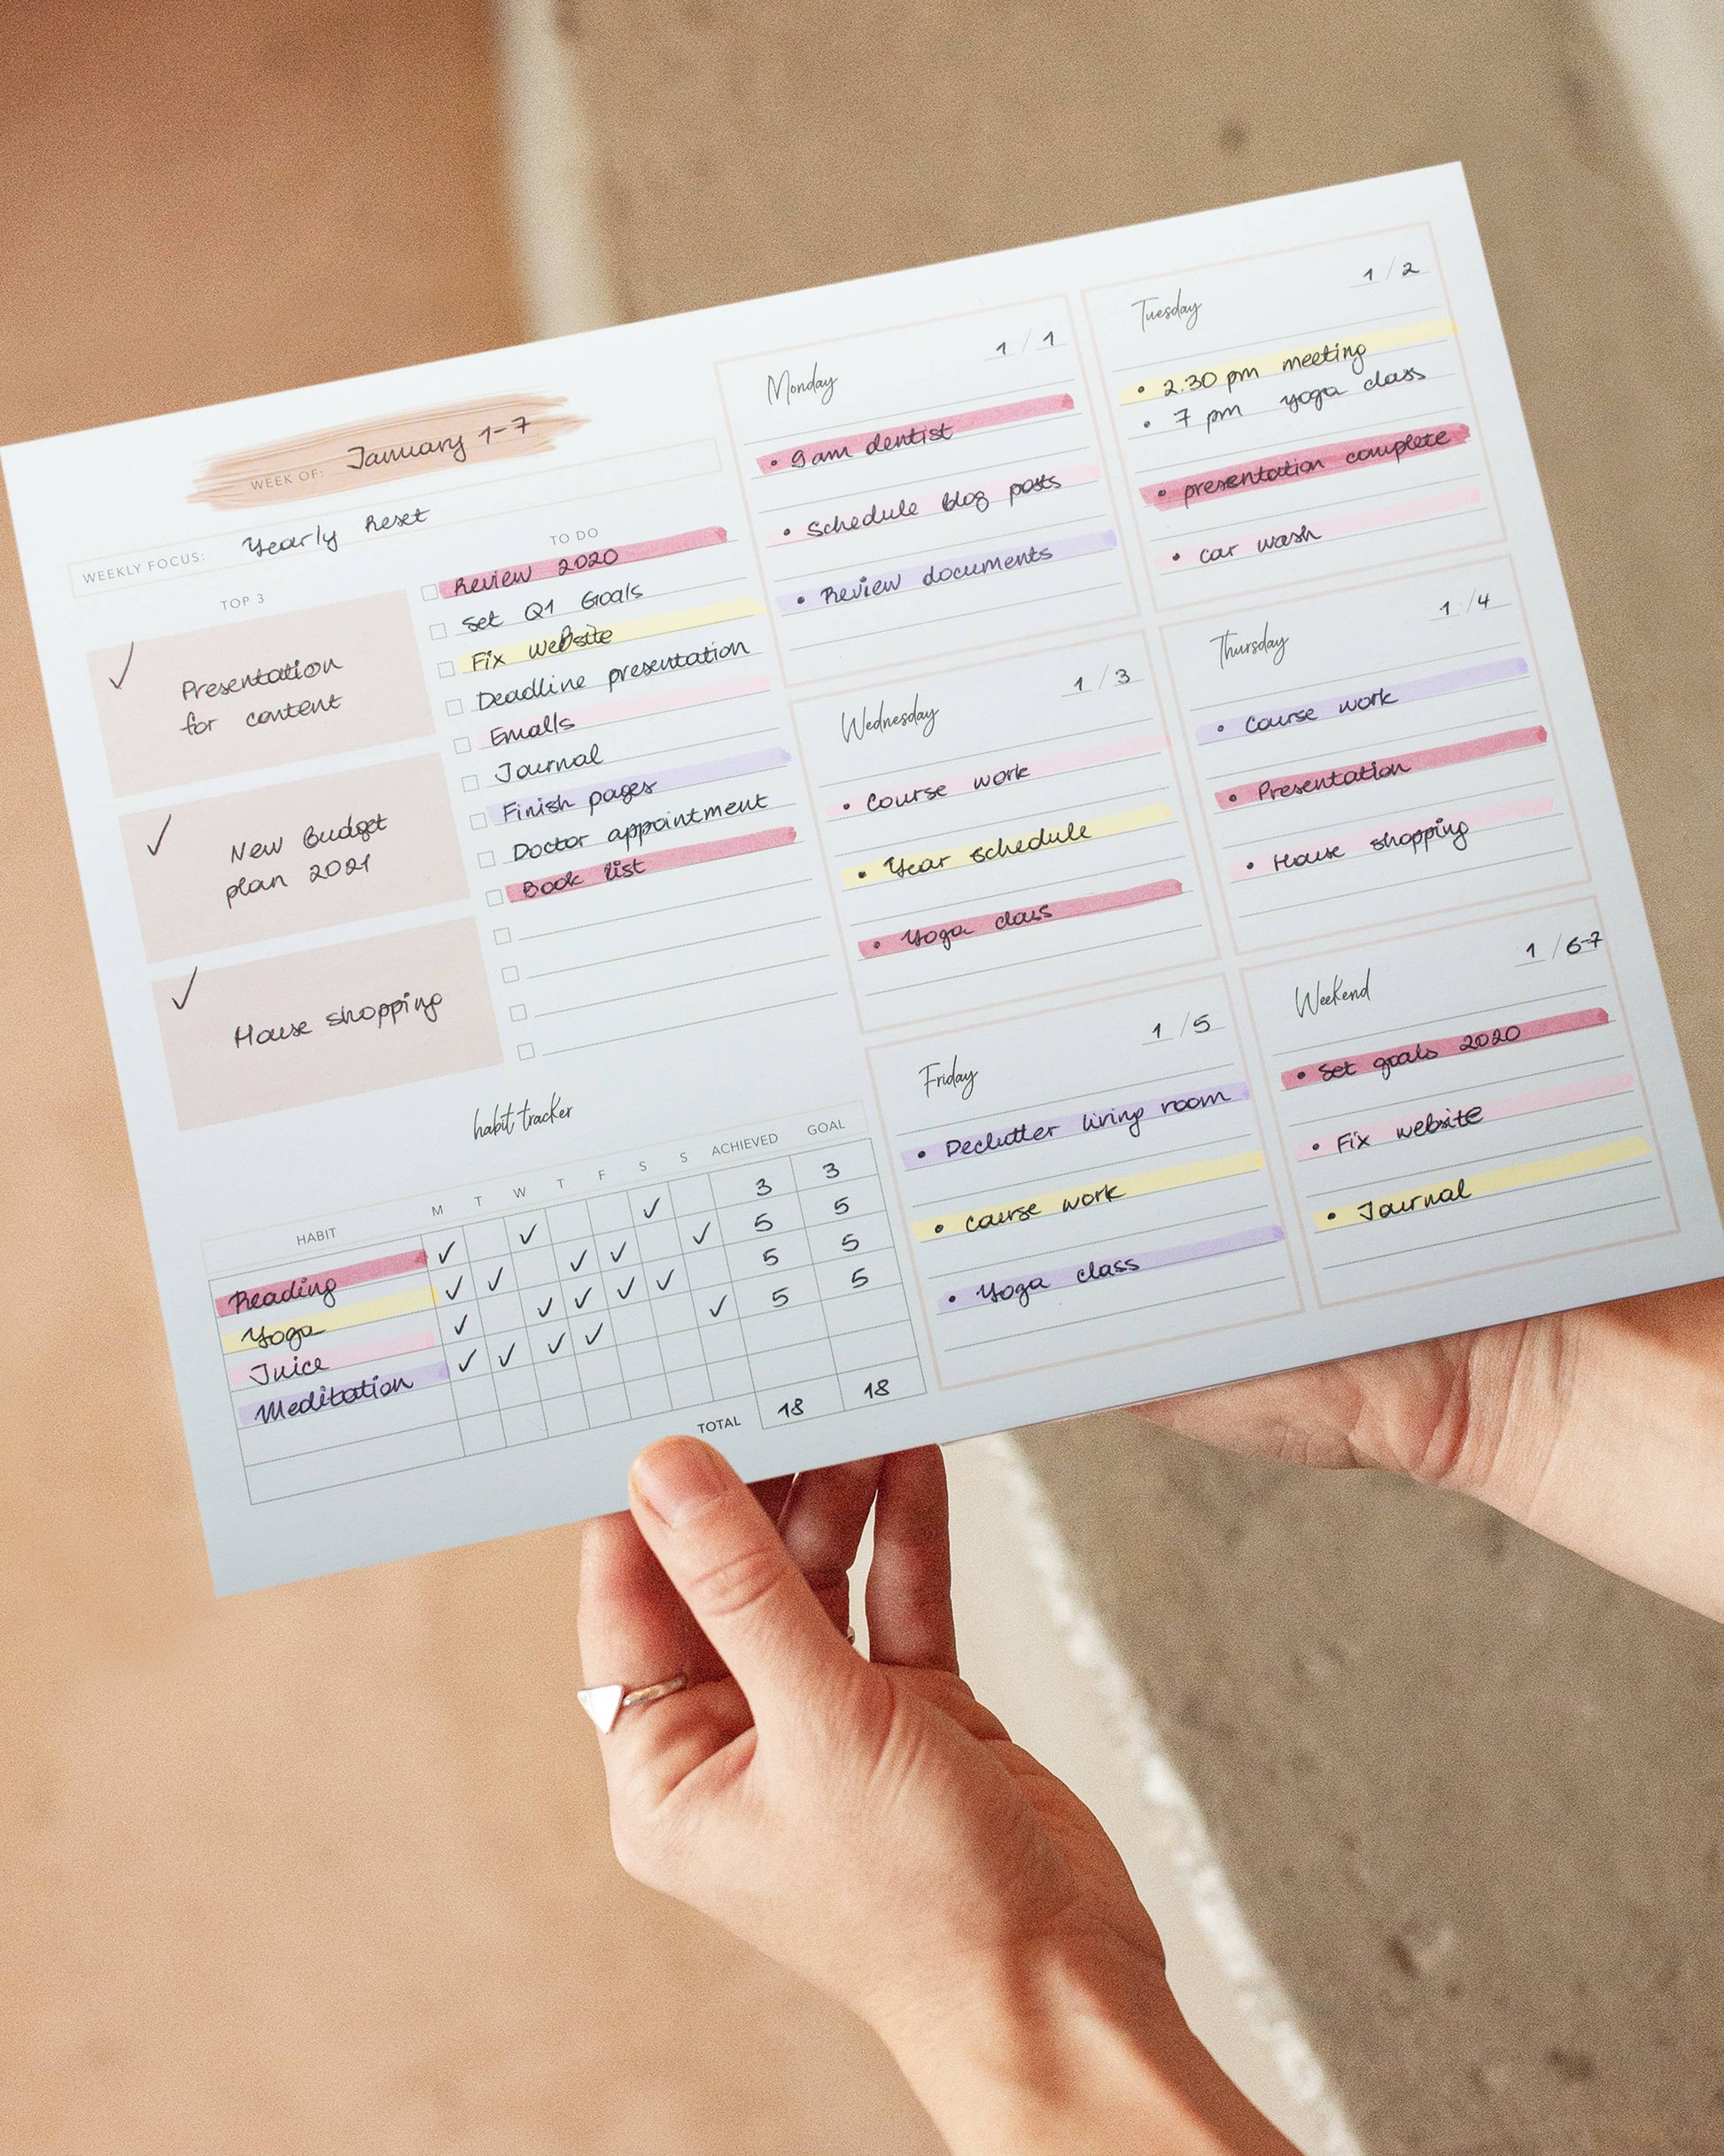 WEEK OF: January 1-7
WEEKLY FOCUS: Yearly Reset
TOP 3
✓ Presentation
for content
✓ New Budget
plan 2021
✓ House shopping
TO DO
Review 2020
Set Q1 Goals
Fix website
Deadline presentation
Emails
Journal
Finish pages
Doctor appointment
Book list
habit tracker
HABIT M T W T F S S ACHIEVED GOAL
Reading ✓ ✓ ✓ 3 3
Yoga ✓ ✓ ✓ ✓ ✓ 5 5
Juice ✓ ✓ ✓ ✓ ✓ 5 5
Meditation ✓ ✓ ✓ ✓ ✓ 5 5
TOTAL 18 18
Monday 1/1
• 9am dentist
• Schedule blog posts
• Review documents
Tuesday 1/2
• 2.30 pm meeting
• 7 pm yoga class
• presentation complete
• car wash
Wednesday 1/3
• Course work
• Year schedule
• Yoga class
Thursday 1/4
• Course work
• Presentation
• House shopping
Friday 1/5
• Declutter living room
• Course work
• Yoga class
Weekend 1/6-7
• Set goals 2020
• Fix website
• Journal